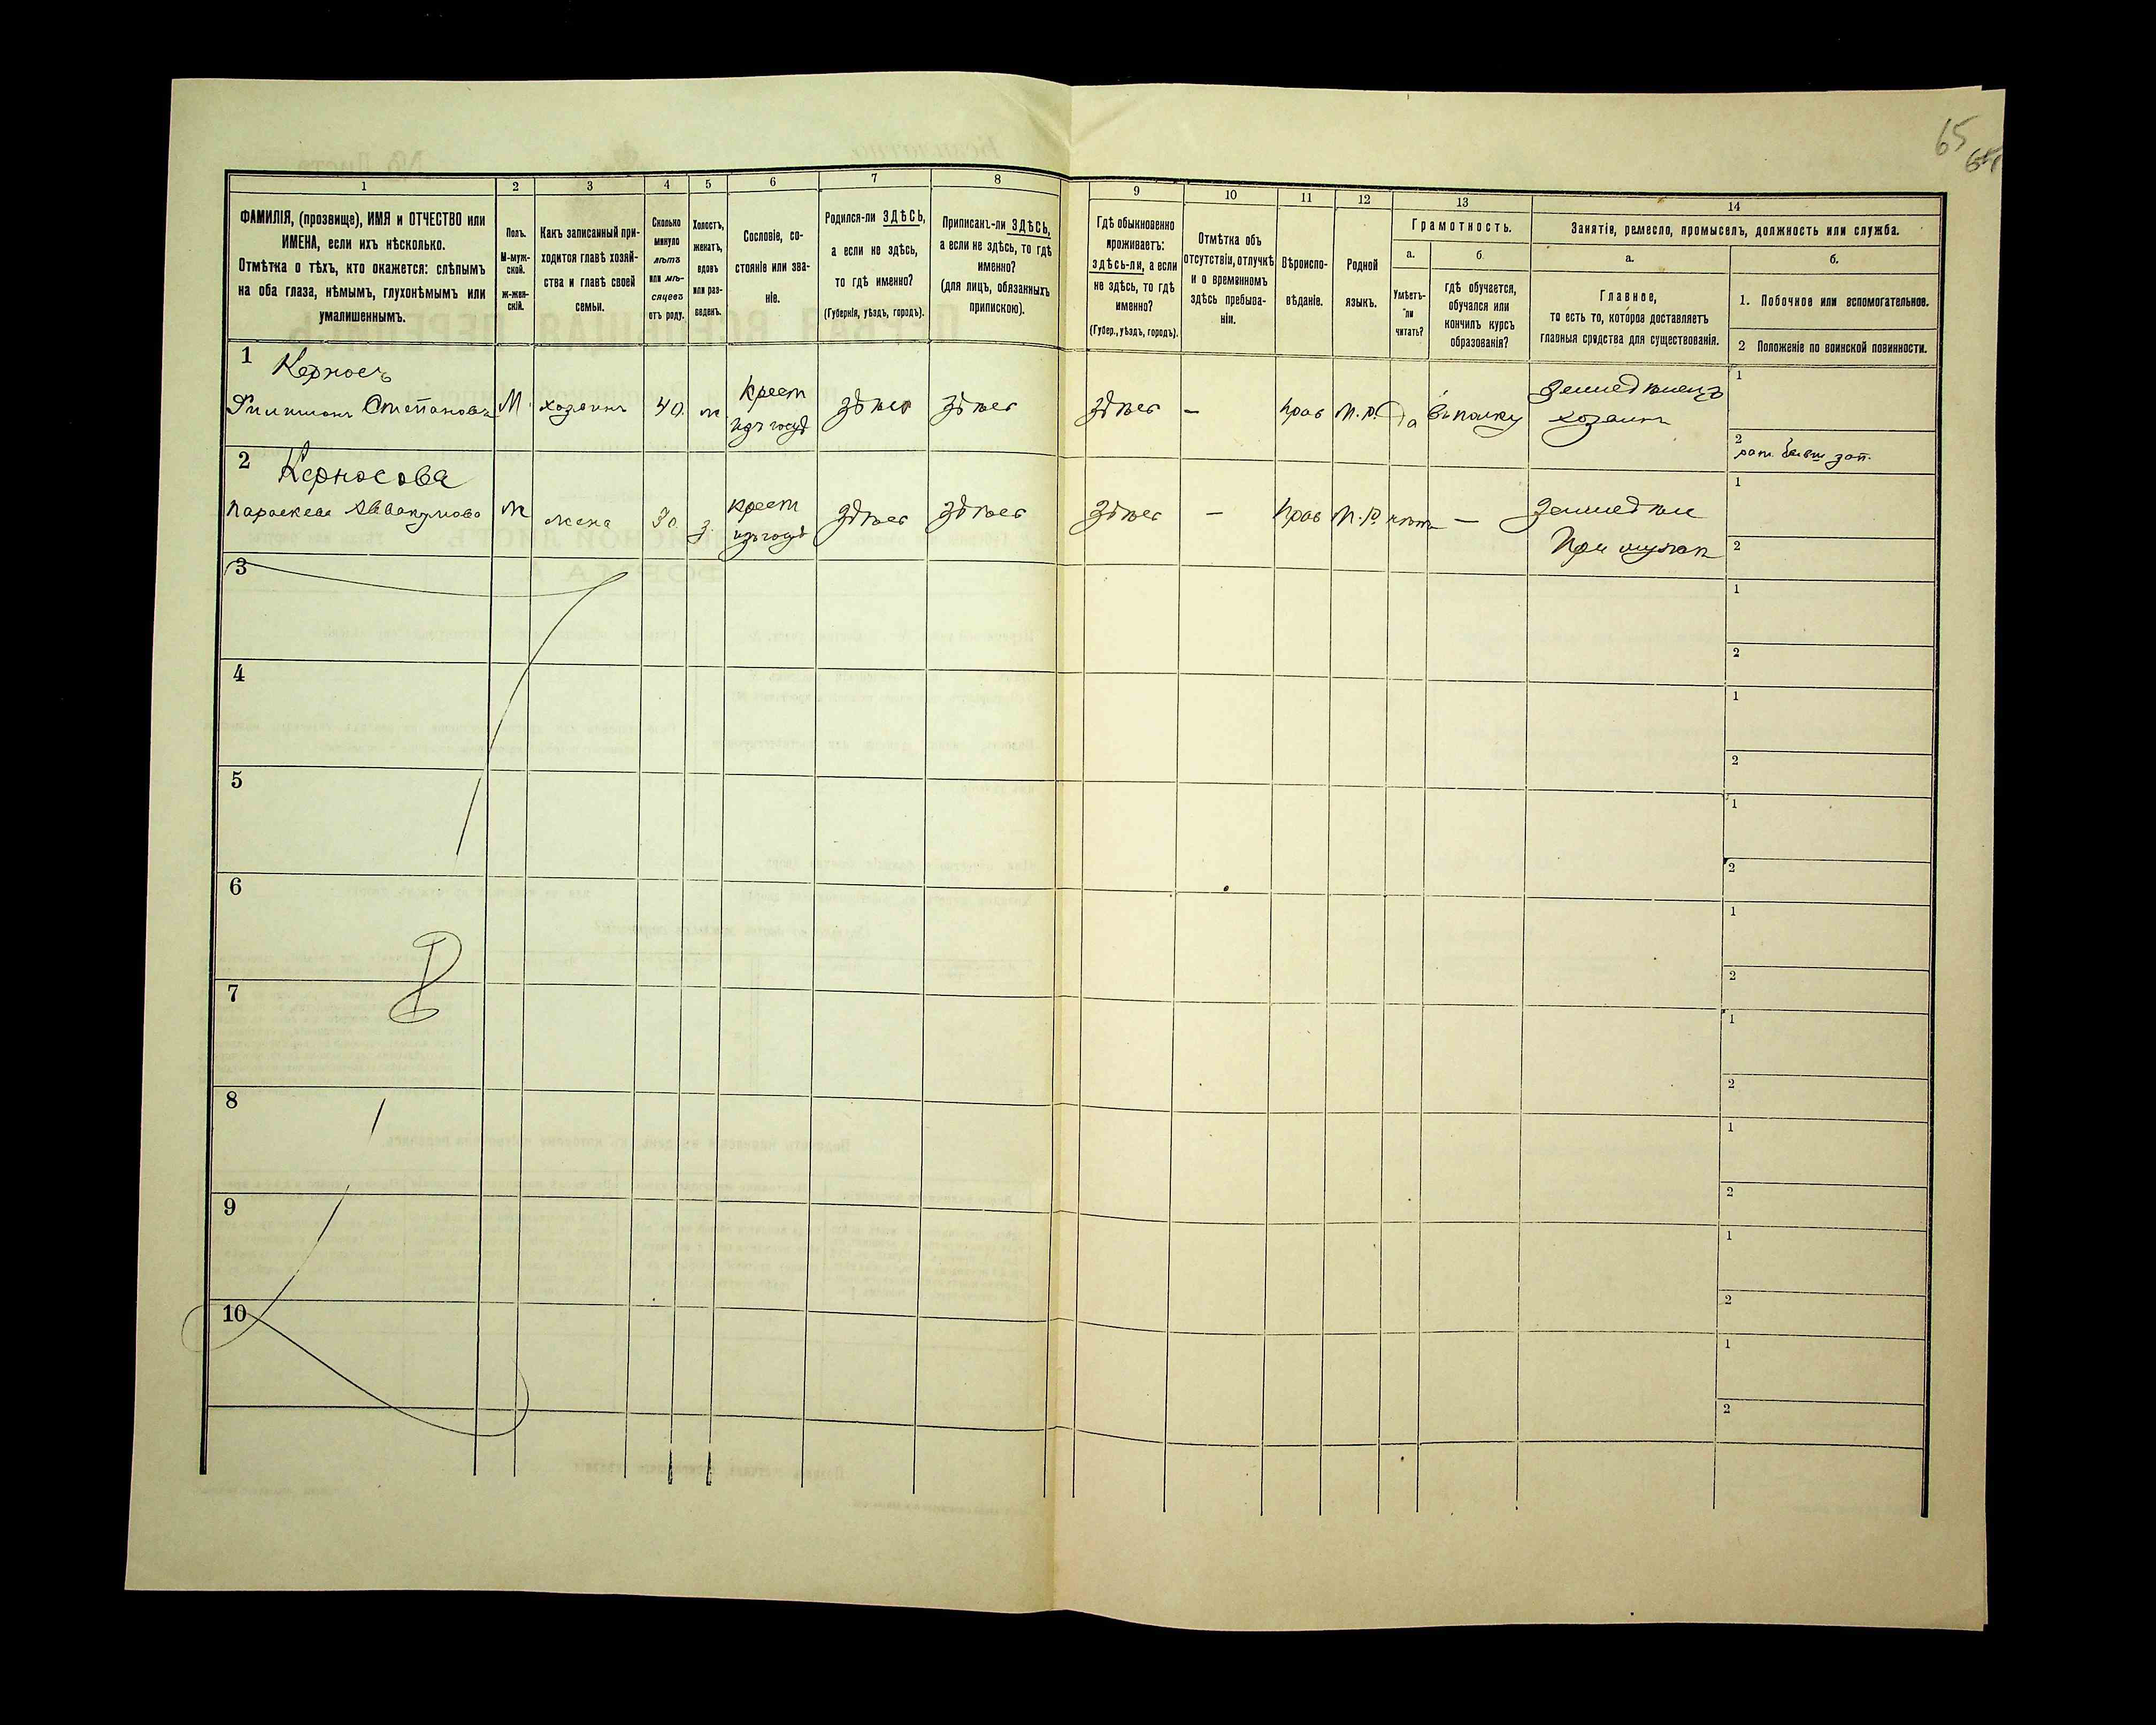 65
1
2
3
4
5
6
7
8
9
10
11
12
13
14
ФАМИЛІЯ, (прозвище), ИМЯ и ОТЧЕСТВО или
ИМЕНА, если ихъ нѣсколько.
Отмѣтка о тѣхъ, кто окажется: слѣпымъ
на оба глаза, нѣмымъ, глухонѣмымъ или
умалишеннымъ.
Полъ.
М-муж-
ской.
ж-жен-
скій.
Какъ записанный при-
ходится главѣ хозяй-
ства и главѣ своей
семьи.
Сколько
минуло
лѣтъ
или мѣ-
сяцевъ
отъ роду.
Холостъ,
женатъ,
вдовъ
или раз-
веденъ.
Сословіе, со-
стояніе или зва-
ніе.
Родился-ли ЗДѢСЬ,
а если не здѣсь,
то гдѣ именно?
(Губернія, уѣздъ, городъ).
Приписанъ-ли ЗДѢСЬ,
а если не здѣсь, то гдѣ
именно?
(для лицъ, обязанныхъ
припискою).
Гдѣ обыкновенно
проживаетъ:
здѣсь-ли, а если
не здѣсь, то гдѣ
именно?
(Губер., уѣздъ, городъ).
Отмѣтка объ
отсутствіи, отлучкѣ
и о временномъ
здѣсь пребыва-
ніи.
Вѣроиспо-
вѣданіе.
Родной
языкъ.
Грамотность.
а.
Умѣетъ-
ли
читать?
б.
гдѣ обучается,
обучался или
кончилъ курсъ
образованія?
Занятіе, ремесло, промыселъ, должность или служба.
а.
Главное,
то есть то, которое доставляетъ
главныя средства для существованія.
б.
1. Побочное или вспомогательное.
2 Положеніе по воинской повинности.
1
Керносъ
Филимонъ Степановъ
М
хозяинъ
40
ж
Крест
изъ госуд
здѣсь
здѣсь
здѣсь
–
Прав
М.Р.
Да
въ полку
Земледѣлецъ
хозяинъ
1
2
2
Керносова
Параскева Аввакумова
ж
жена
30
з
крест
изъ госуд
здѣсь
здѣсь
здѣсь
–
Прав
М.Р.
нѣтъ
–
Земледѣл
При мужѣ
1
2
3
1
2
4
1
2
5
1
2
6
1
2
7
1
2
8
1
2
9
1
2
10
1
2